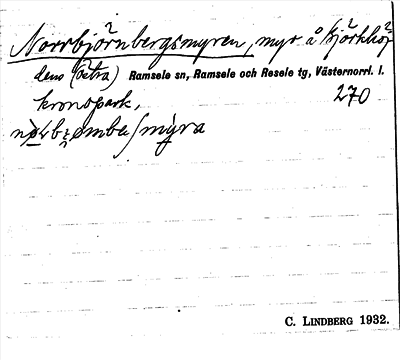 Norrbjörnbergsmyren, myr å Björkhöj-
dens (östra) Ramsele sn, Ramsele och Resele tg, Västernorrl. l.
kronopark, 270
C. LINDBERG 1932.